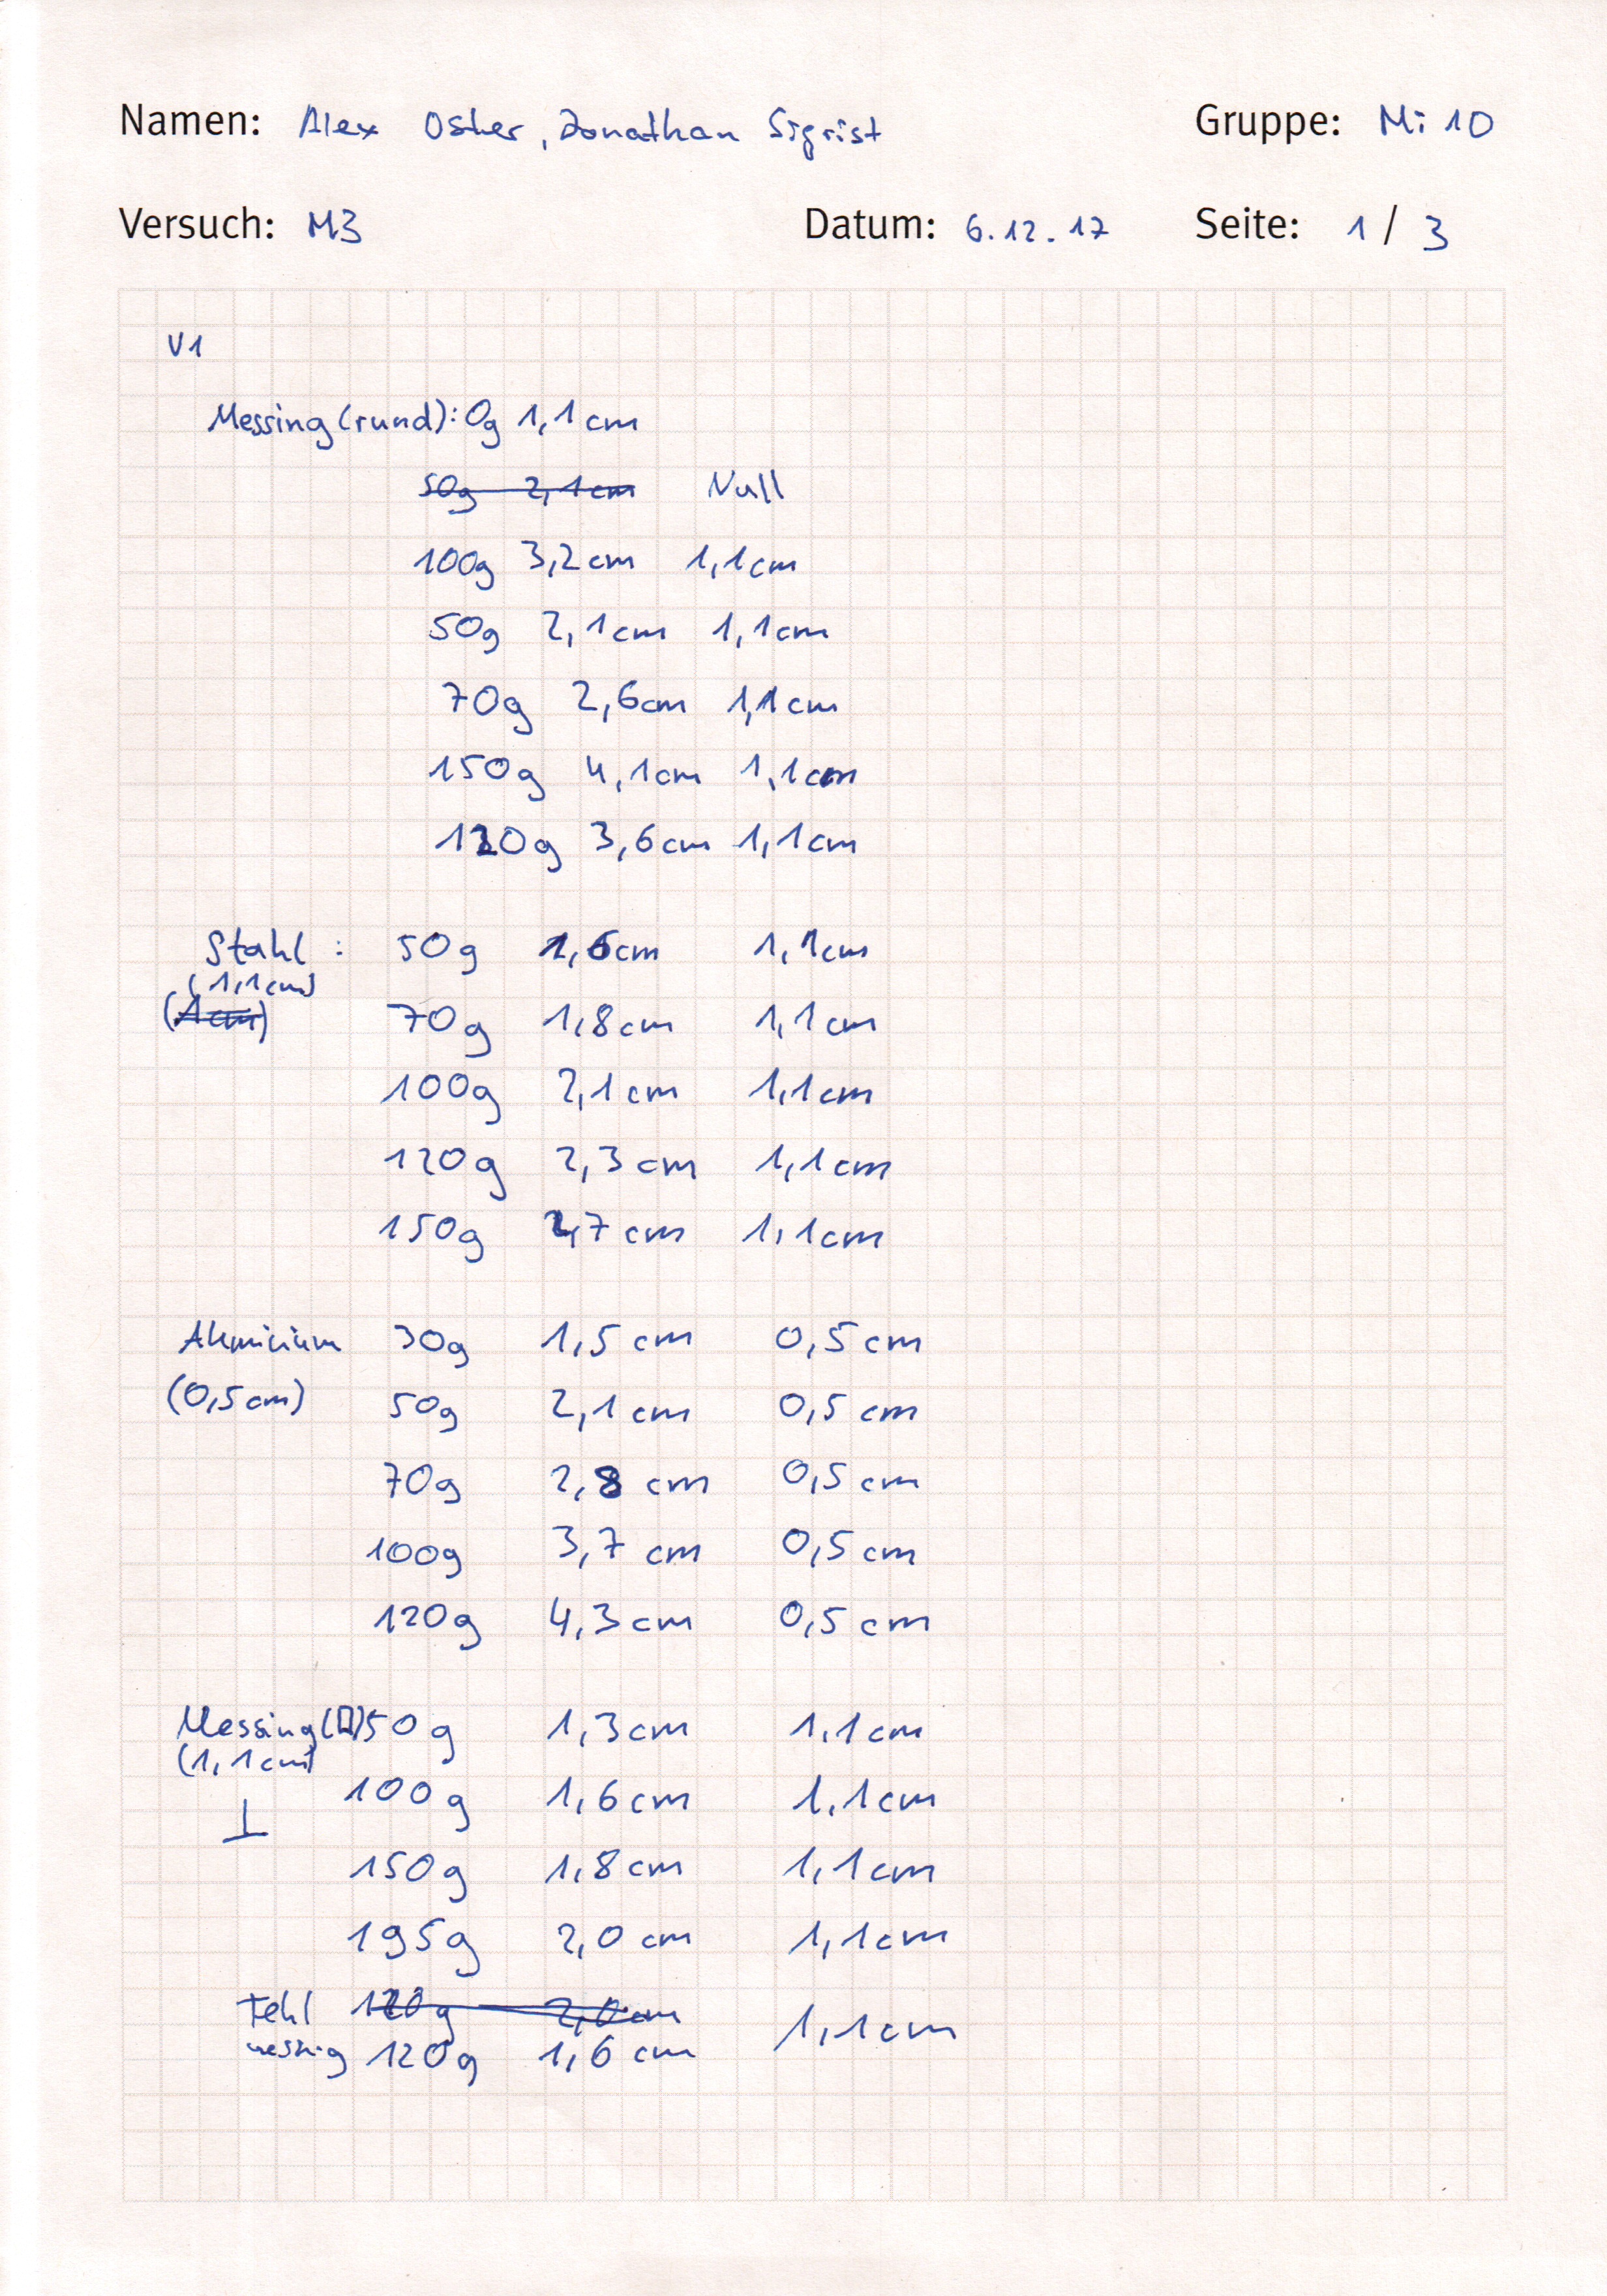 Namen: Alex Oster, Jonathan Sigrist Gruppe: Mi 10
Versuch: M3 Datum: 6.12.17 Seite: 1 / 3
V1
Messing (rund): 0g 1,1 cm
50g 2,1 cm Null
100g 3,2 cm 1,1 cm
50g 2,1 cm 1,1 cm
70g 2,6 cm 1,1 cm
150g 4,1 cm 1,1 cm
120g 3,6 cm 1,1 cm
Stahl : 50g 1,6 cm 1,1 cm
(1,1 cm)
(1 cm) 70g 1,8 cm 1,1 cm
100g 2,1 cm 1,1 cm
120g 2,3 cm 1,1 cm
150g 2,7 cm 1,1 cm
Aluminium 30g 1,5 cm 0,5 cm
(0,5 cm) 50g 2,1 cm 0,5 cm
70g 2,8 cm 0,5 cm
100g 3,7 cm 0,5 cm
120g 4,3 cm 0,5 cm
Messing (□) 50g 1,3 cm 1,1 cm
(1,1 cm)
100g 1,6 cm 1,1 cm
⊥
150g 1,8 cm 1,1 cm
195g 2,0 cm 1,1 cm
Fehl 120g 2,0 cm
messung 120g 1,6 cm 1,1 cm